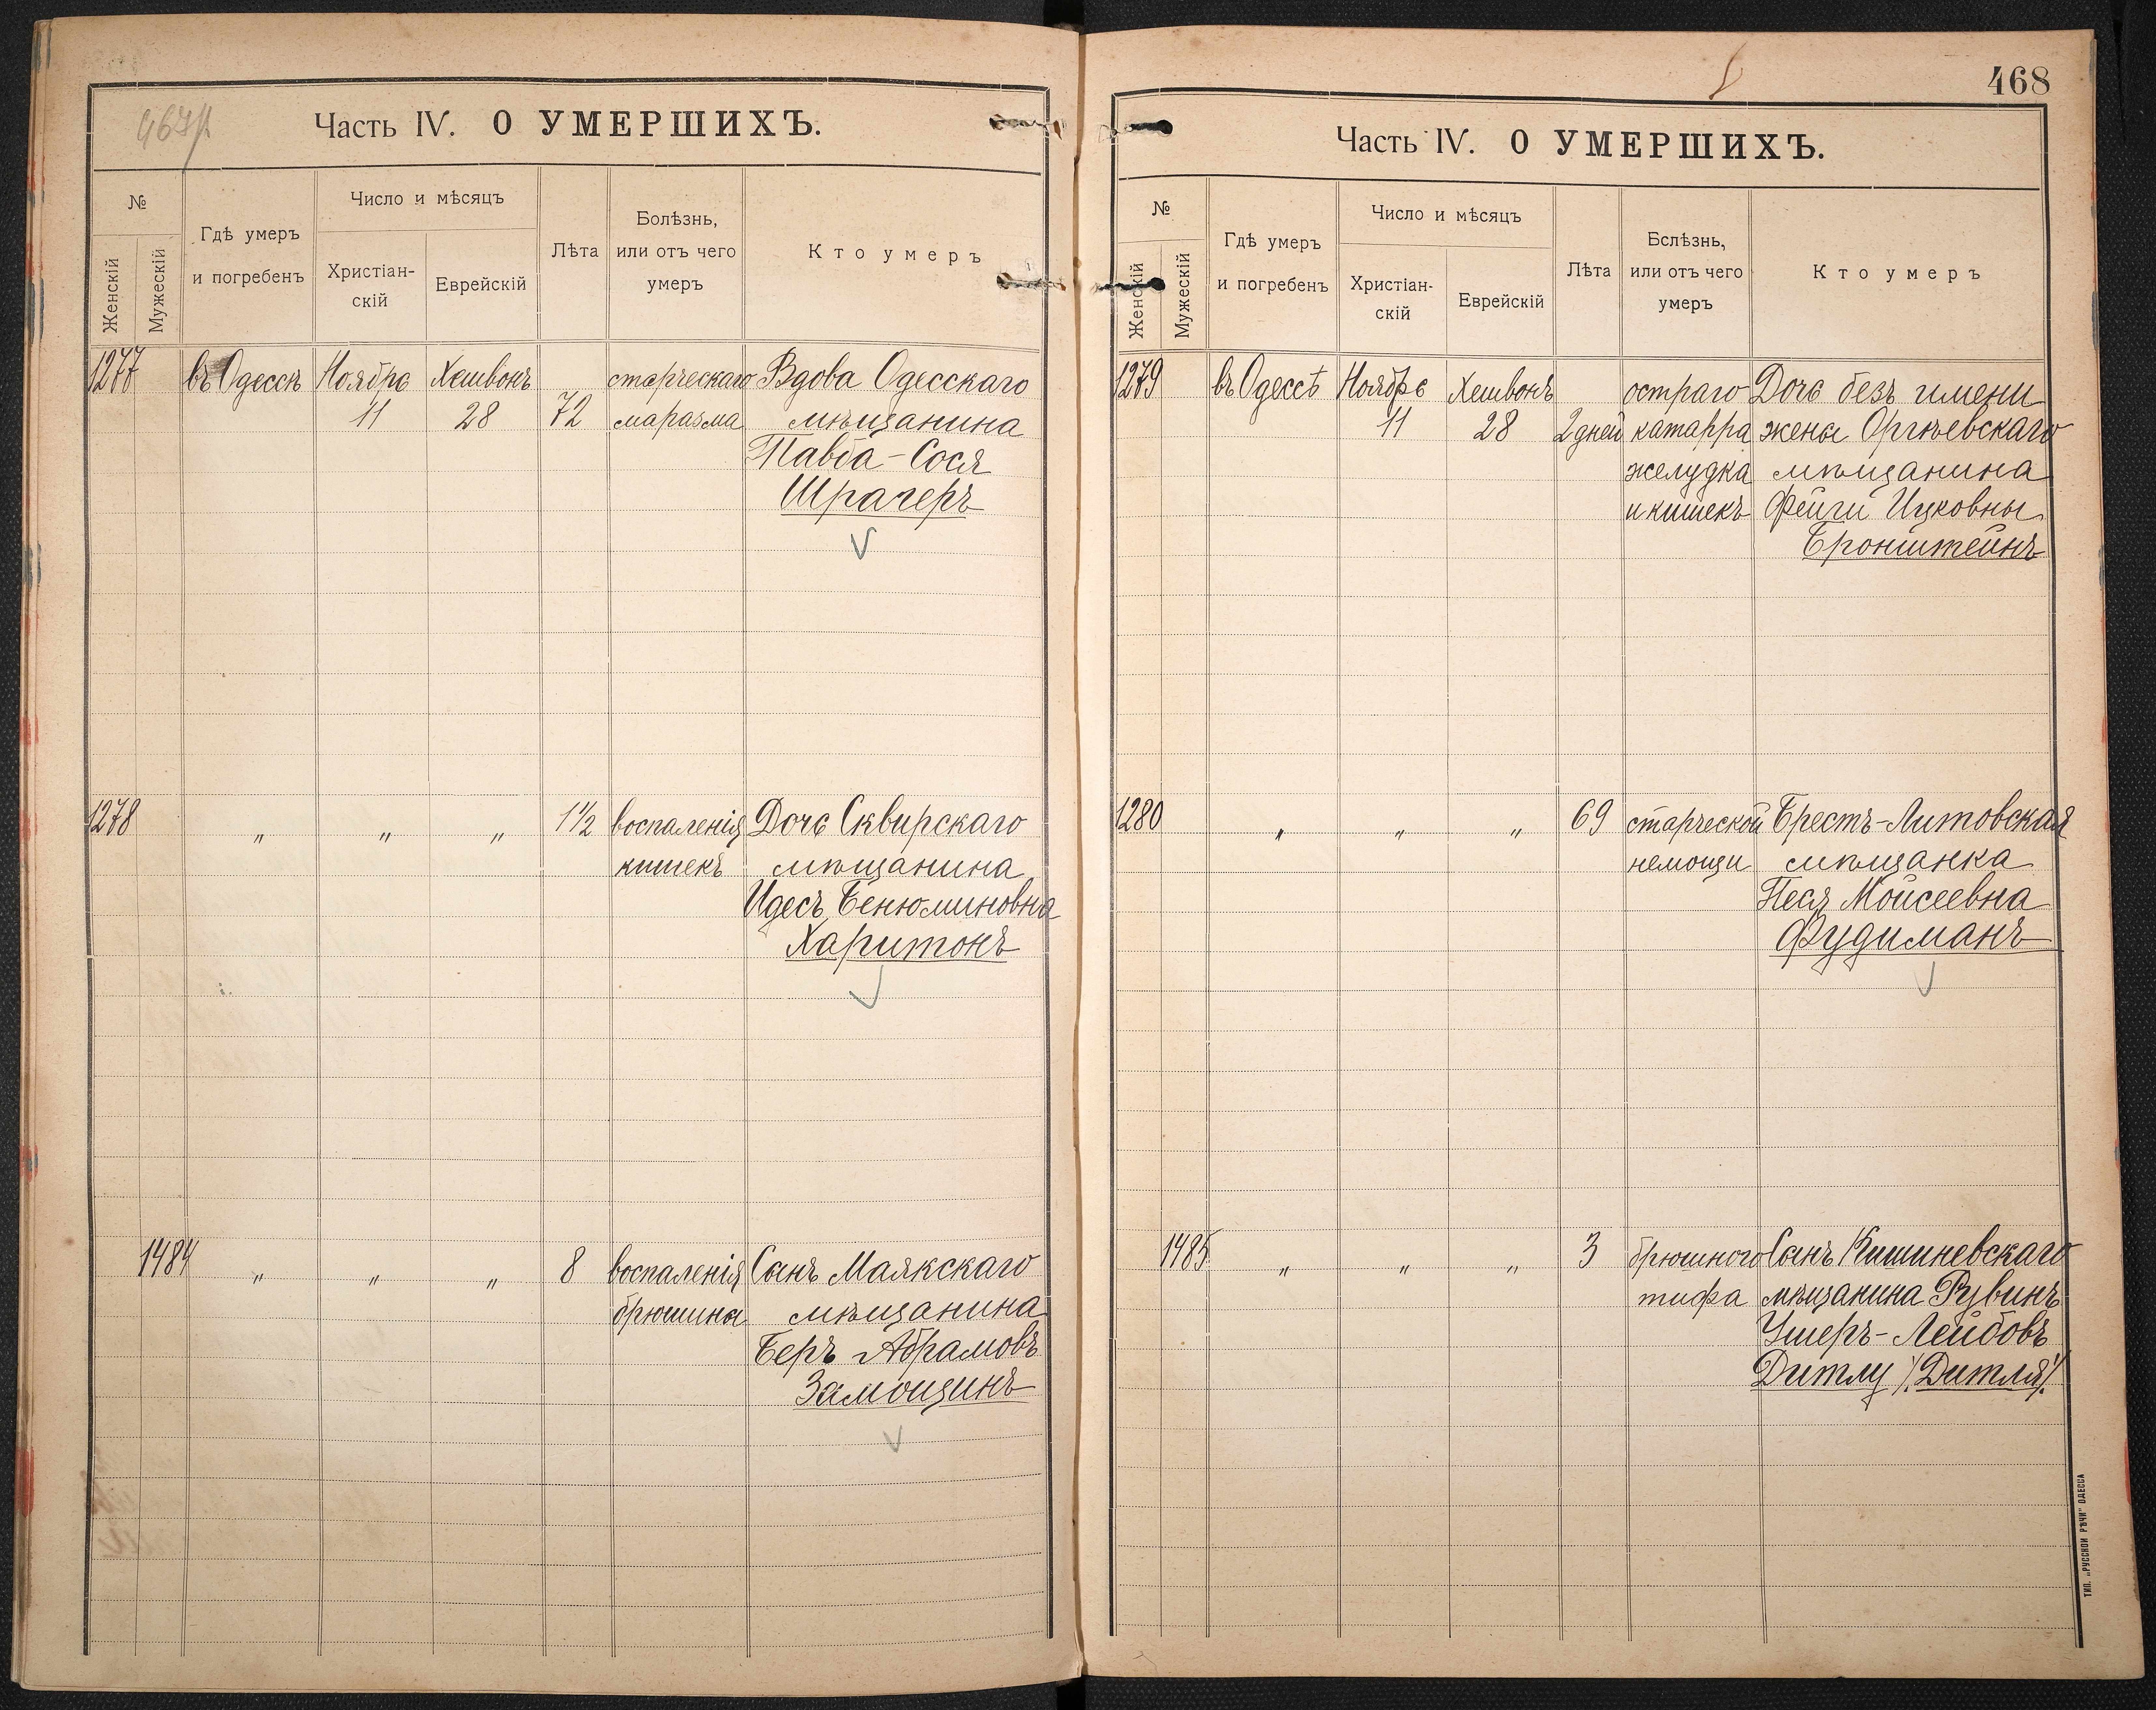 Часть IV. О УМЕРШИХЪ.
№
Женскій
Мужескій
Гдѣ умеръ
и погребенъ
Число и мѣсяцъ
Христіан-
скій
Еврейскій
Лѣта
Болѣзнь,
или отъ чего
умеръ
Кто умеръ
1277 въ Одессѣ Ноябрь Хешвонъ старческаго Вдова Одесскаго
11 28 72 маразма мѣщанина
Сося
Шрагеръ
1278 „ „ „ 1½ воспаленія Дочь Сквирскаго
кишекъ мѣщанина
Идесъ Бенюминовна
Харитонъ
1484 „ „ „ 8 воспаленія Сынъ Маякскаго
брюшины мѣщанина
Беръ Абрамовъ
Замощинъ
468
Часть IV. О УМЕРШИХЪ.
№
Женскій
Мужескій
Гдѣ умеръ
и погребенъ
Число и мѣсяцъ
Христіан-
скій
Еврейскій
Лѣта
Бслѣзнь,
или отъ чего
умеръ
Кто умеръ
1279 въ Одессѣ Ноябрь Хешвонъ остраго Дочь безъ имени
11 28 2 дней катарра жены Оргѣевскаго
желудка мѣщанина
и кишекъ Фейги Ицковны
Бронштейнъ
1280 „ „ „ 69 старческой Брестъ-Литовская
немощи мѣщанка
Песя Мойсеевна
Фудиманъ
1485 „ „ „ 3 брюшного Сынъ Кишиневскаго
тифа мѣщанина Рувинъ
Ушеръ-Лейбовъ
Дитлу /.Дитля/.
ТИП. „РУССКОЙ РѢЧИ" ОДЕССА